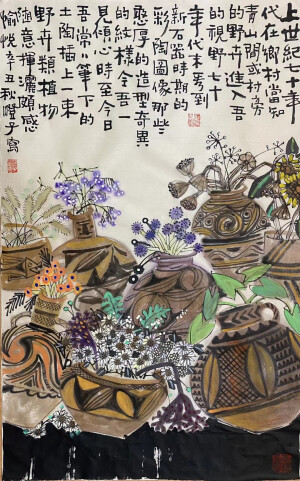 上世纪七十年
代在乡村当知
青山间或村旁
的野卉進入吾
的视野七十
年代末看到
新石器時期的
彩陶图像那些
憨厚的造型奇異
的纹樣令吾一
見傾心時至今日
吾常小筆下的
土陶插上一束
野卉類植物
随意揮灑頗感
愉悦辛丑秋
子寫